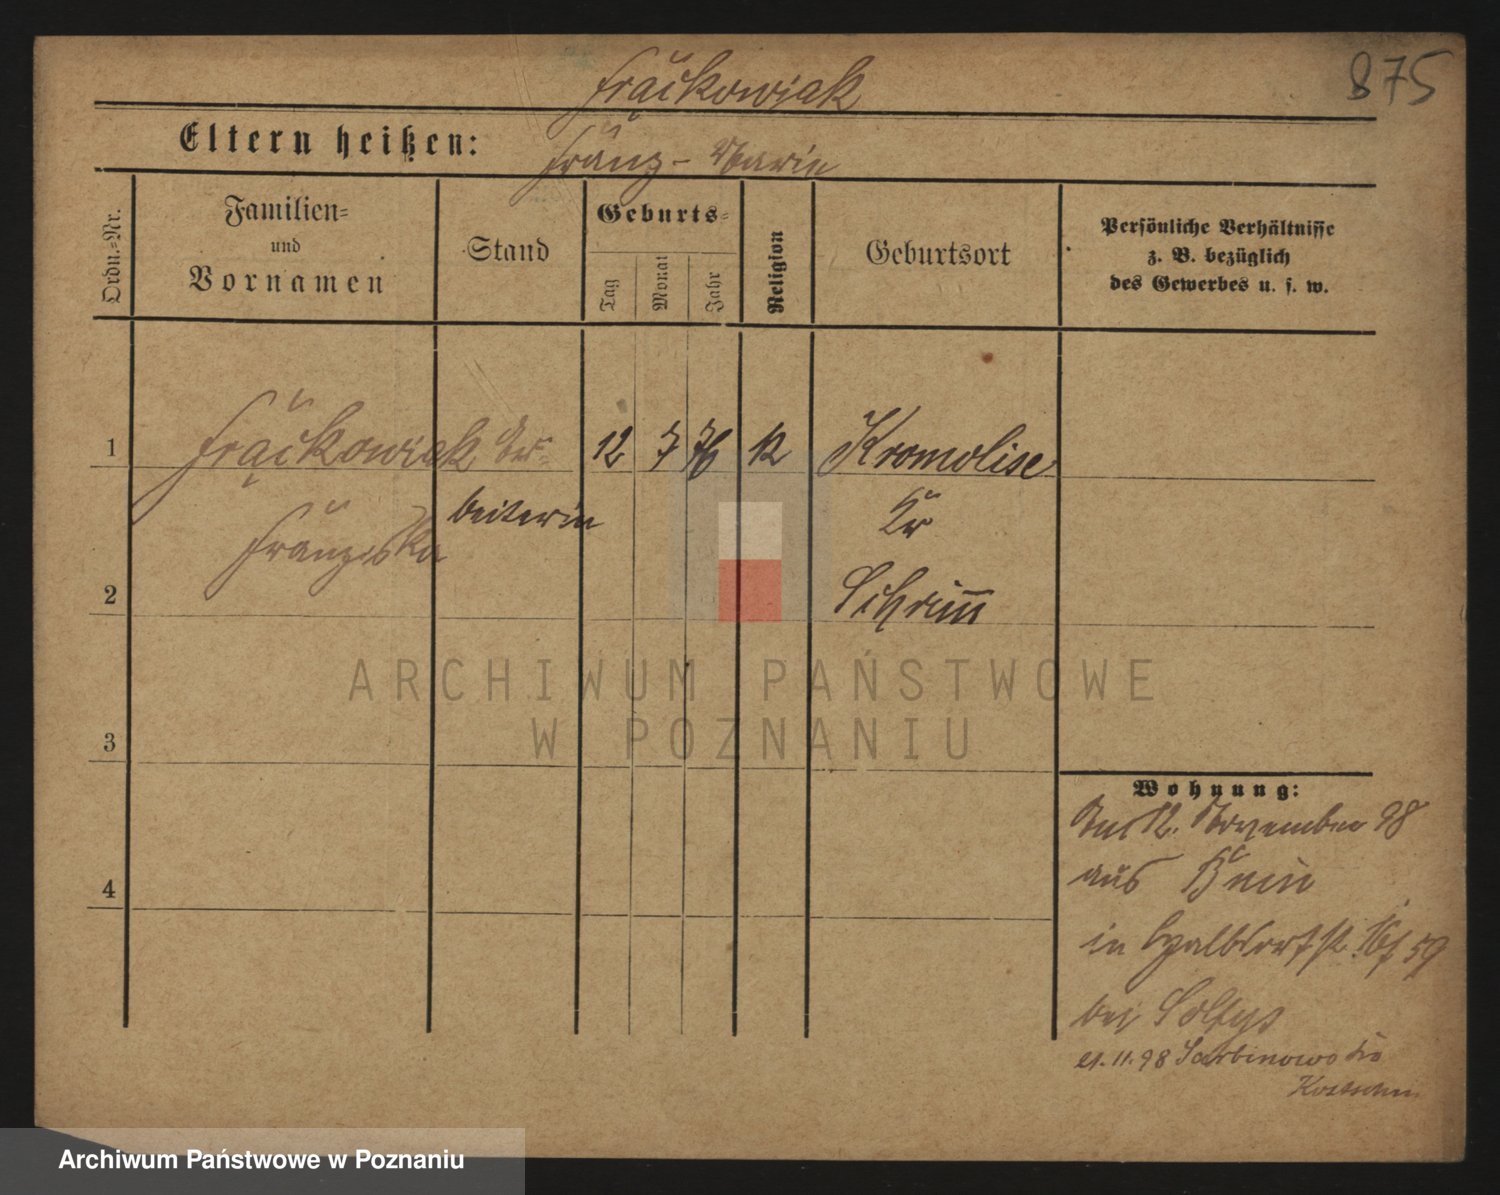 875
Frąckowiak
Eltern heißen:
Franz - Marie
Ordn.-Nr.
Familien-
und
Vornamen
Stand
Geburts-
Tag
Monat
Jahr
Religion
Geburtsort
Persönliche Verhältnisse
z. B. bezüglich
des Gewerbes u. s. w.
1
Frąckowiak Ar- 12 7 76 K Kromolise
beiterin Kr
Franziska
2
Schrim̅
ARCHIWUM PAŃSTWOWE
W POZNANIU
3
Wohnung:
12. November 98
aus Bnin
4
in Halbdorfstr. 59
bei Soltys
21.11.98 Sarbinowo Kr
Kostschin
Archiwum Państwowe w Poznaniu